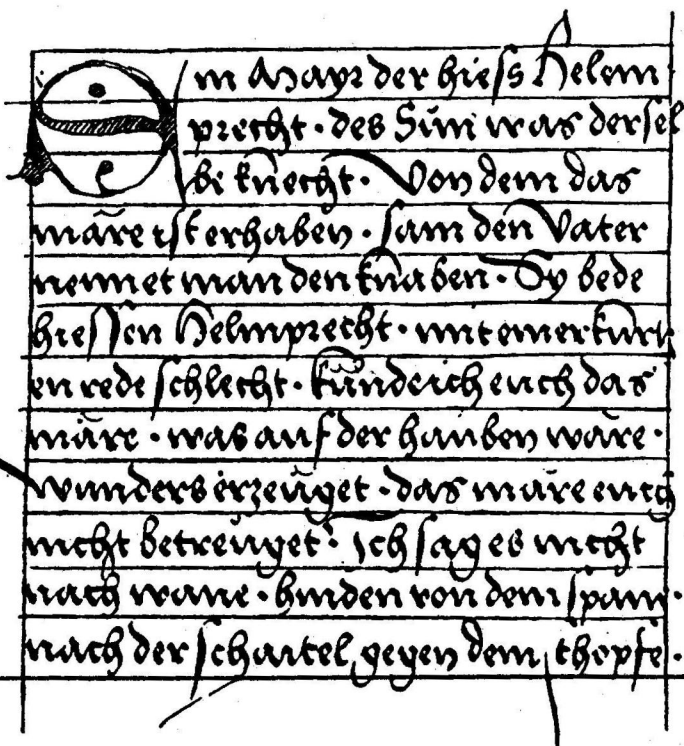 Ein Mayr der hiess Helem
precht · des Sun was dersel
be knecht · Von dem das
märe ist erhaben · sam den Vater
nennet man den knaben · Sy bede
hiessen Helmprecht · mit einer kurtz
en rede schlecht · künde ich euch das
märe · was auf der hauben wäre ·
wunders erzeuget · das märe euch
nicht betreuget · Ich sag es nicht
nach wane · hinden von dem span ·
nach der schaitel gegen dem schopfe ·